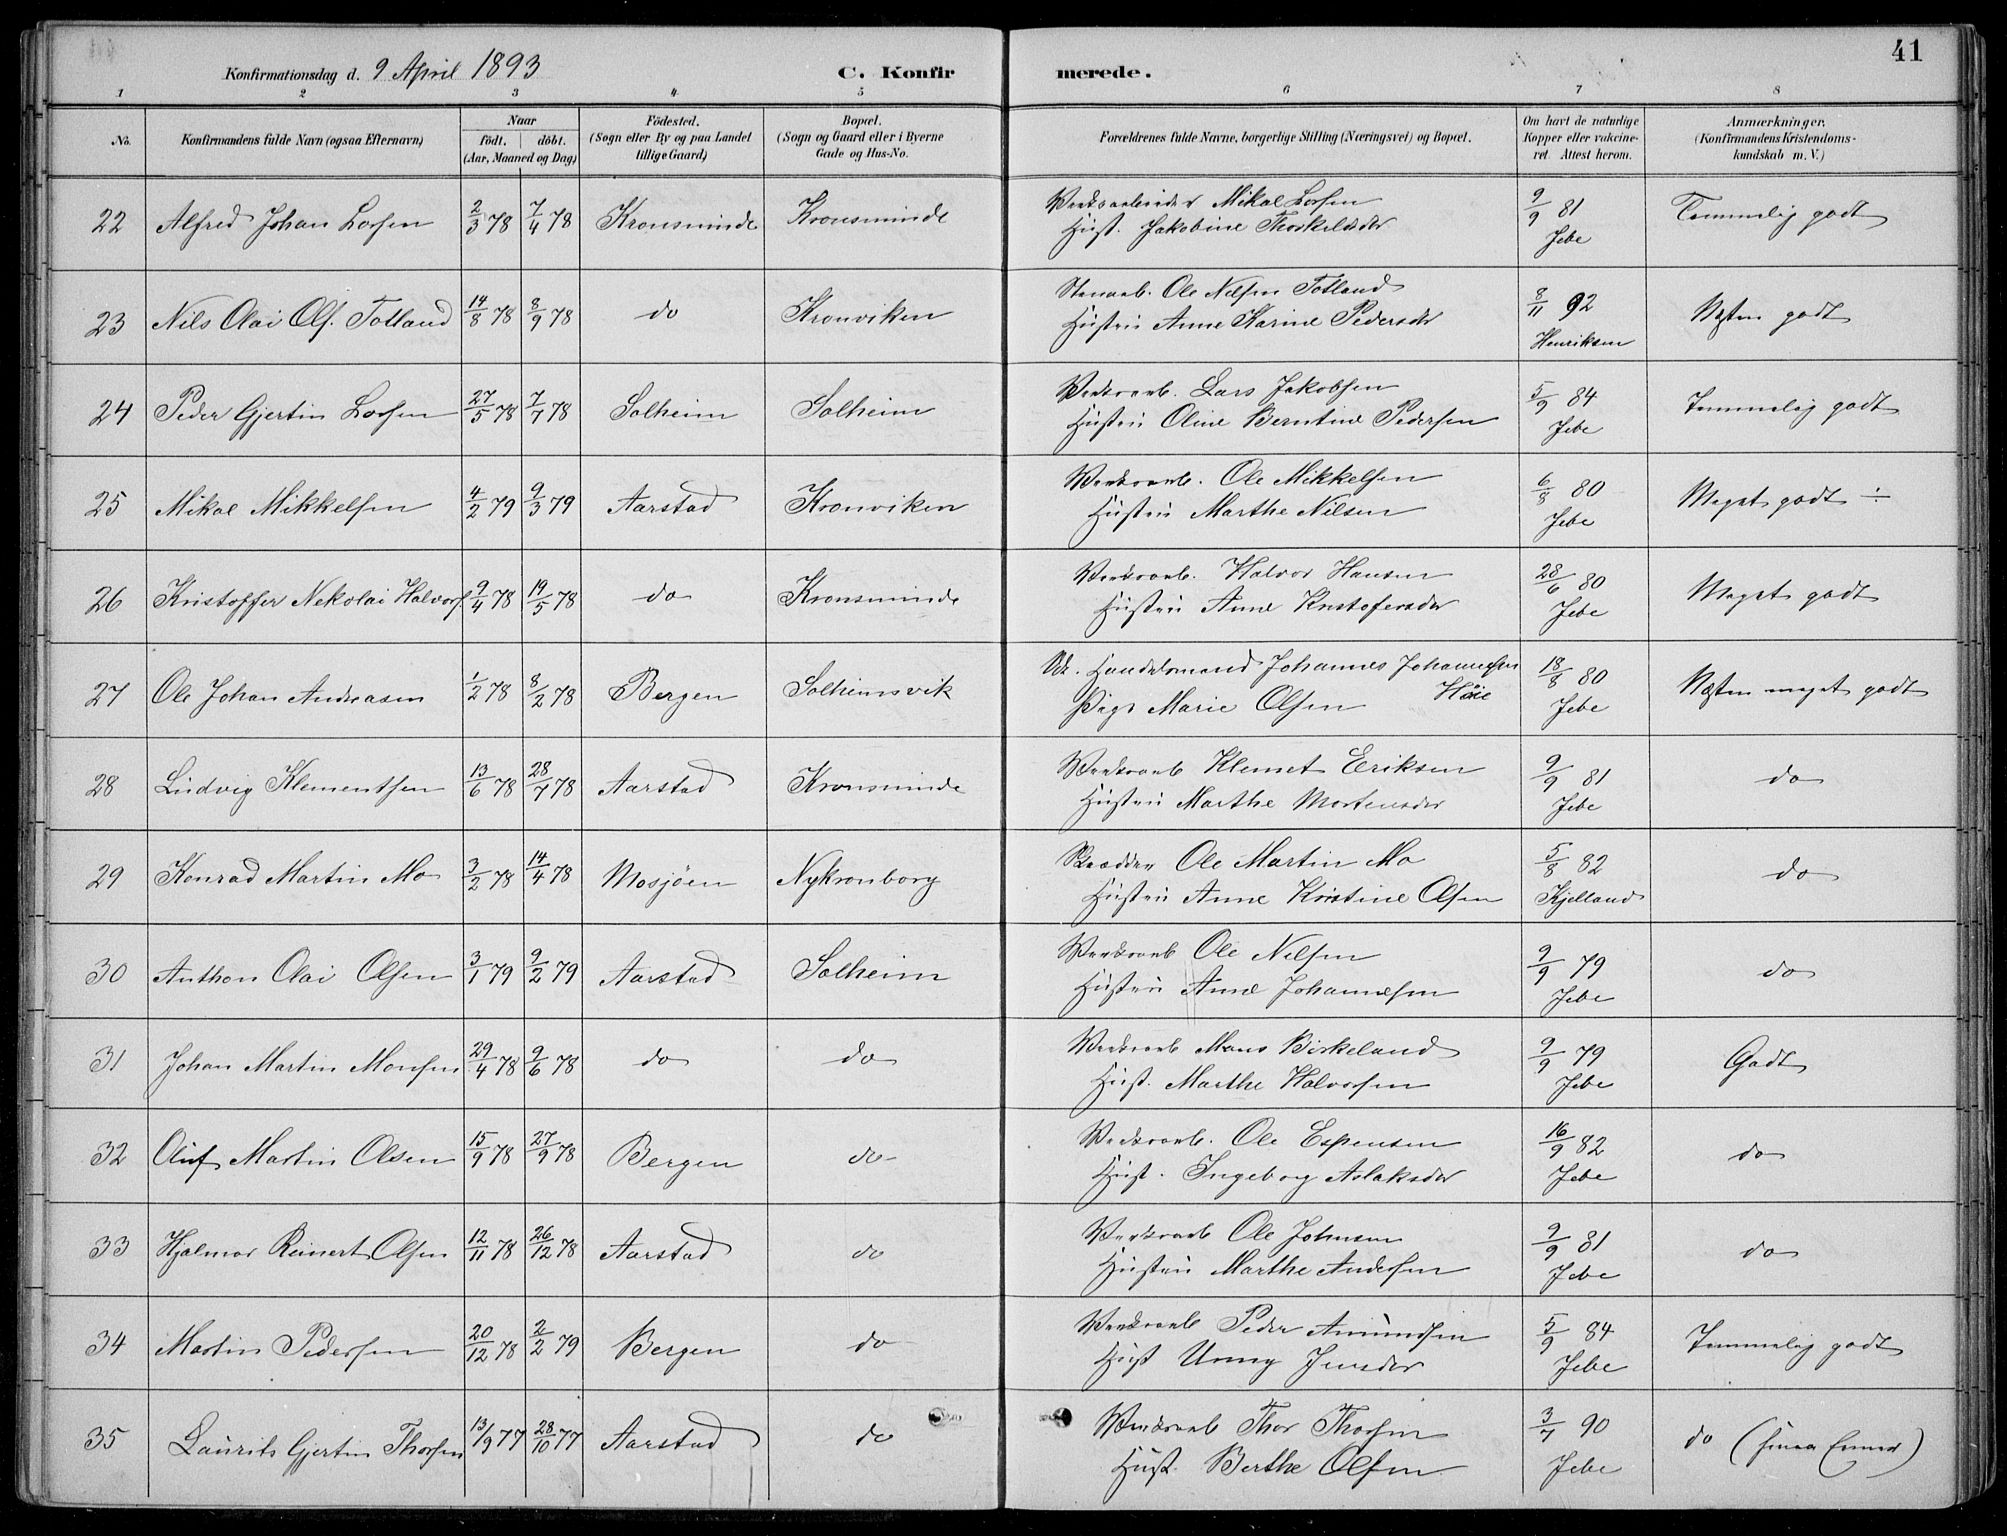 41
Konfirmationsdag d. 9 April 1893 C. Konfirmerede.
1 2 3 4 5 6 7 8
No. Konfirmandens fulde Navn (ogsaa Efternavn) Naar födt. döbt. (Aar, Maaned og Dag) Födested. (Sogn eller By og paa Landet tillige Gaard) Bopæl. (Sogn og Gaard eller i Byerne Gade og Hus-No. Forældrenes fulde Navne, borgerlige Stilling (Næringsvei) og Bopæl. Om havt de naturlige Kopper eller vakcineret. Attest herom. Anmærkninger. (Konfirmandens Kristendomskundskab m. V.)
22 Alfred Johan Larsen 2/3 78 7/4 78 Kronsminde Kronsminde Verksarbeider Mikal Larsen 9/9 81 Temmelig godt
Hust. Jakobine Thorkelsdtr Jebe
23 Nils Olai Ols. Totland 14/8 78 8/9 78 do Kronviken Stenarb. Ole Nilsen Totland 8/11 92 Næsten godt
Hustru Anne Karine Pedersdtr Henriksen
24 Peder Gjertin Larsen 27/5 78 7/7 78 Solheim Solheim Verksarb. Lars Jakobsen 5/9 84 Temmelig godt
Hustru Oline Berntine Pedersen Jebe
25 Mikal Mikkelsen 4/2 79 9/3 79 Aarstad Kronviken Verksarb. Ole Mikkelsen 6/8 80 Meget godt ÷
Hustru Marthe Nilsen Jebe
26 Kristoffer Nekolai Halvors 9/4 78 19/5 78 do Kronsminde Verksarb. Halvor Hansen 28/6 80 Meget godt
Hustru Anne Kristofersdtr Jebe
27 Ole Johan Andreasen 1/2 78 8/2 78 Bergen Solheimsvik Handelsmand Johannes Johannesen 18/8 80 Næsten meget godt
Pige Marie Olsen Höie Jebe
28 Ludvig Klementsen 13/6 78 28/7 78 Aarstad Kronsminde Verksarb Klemet Eriksen 9/9 81 do
Hustru Marthe Mortensdtr Jebe
29 Konrad Martin Mo 3/2 78 14/4 78 Mosjöen Nykronborg Skrædder Ole Martin Mo 5/8 82 do
Hustru Anne Kristine Olsen Kjelland
30 Anthon Olai Olsen 3/1 79 9/2 79 Aarstad Solheim Verksarb Ole Nilsen 9/9 79 do
Hustru Anne Johannesen Jebe
31 Johan Martin Monsen 29/4 78 9/6 78 do do Verksarb Mons Birkeland 9/9 79 Godt
Hust. Marthe Halvorsen Jebe
32 Oluf Martin Olsen 15/9 78 27/9 78 Bergen do Verksarb. Ole Espensen 16/9 82 do
Hust. Ingeborg Aslaksdtr Jebe
33 Hjalmar Reinert Olsen 12/11 78 26/12 78 Aarstad do Verksarb Ole Johnsen 9/9 81 do
Hustru Marthe Andersen Jebe
34 Martin Pedersen 20/12 78 2/2 79 Bergen do Verksarb Peder Amundsen 5/9 84 Temmelig godt
Hust Unny Jensdtr Jebe
35 Laurits Gjertin Thorsen 13/9 77 28/10 77 Aarstad do Verksarb Thor Thorsen 3/7 90 do
Hust. Berthe Olsen Jebe